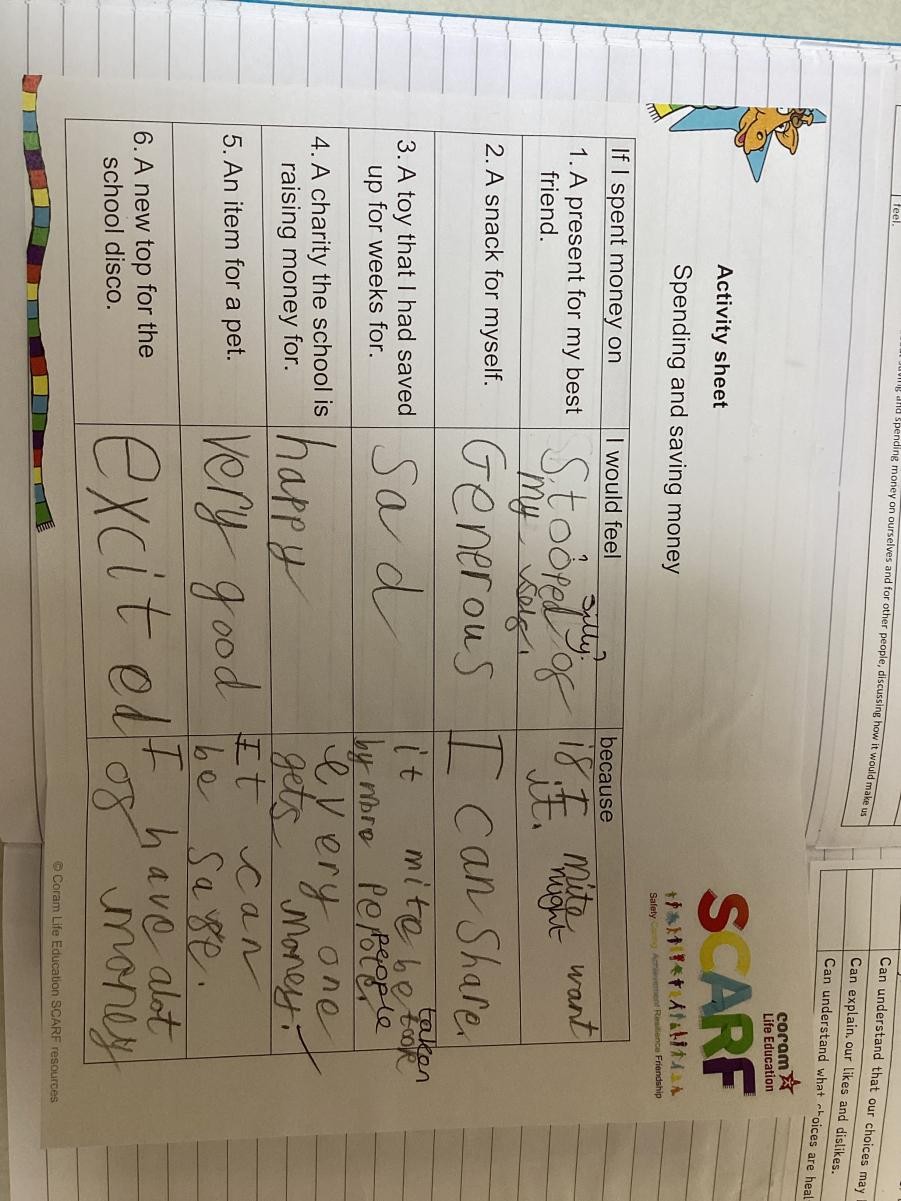 feel.
saving and spending money on ourselves and for other people, discussing how it would make us
Can understand that our choices may
Can explain our likes and dislikes.
Can understand what choices are heal
coram
Life Education
SCARF
Safety Caring Achievement Resilience Friendship
Activity sheet
Spending and saving money
If I spent money on
I would feel
because
1. A present for my best
friend.
Stooped of
silly?
my self.
if I mite want
might
it.
2. A snack for myself.
Generous
I can share.
3. A toy that I had saved
up for weeks for.
sad
it mite be took
taken
by more
people
4. A charity the school is
raising money for.
happy
every one
gets money.
5. An item for a pet.
very good
It can
be safe.
6. A new top for the
school disco.
excited
I have alot
of money
© Coram Life Education SCARF resources